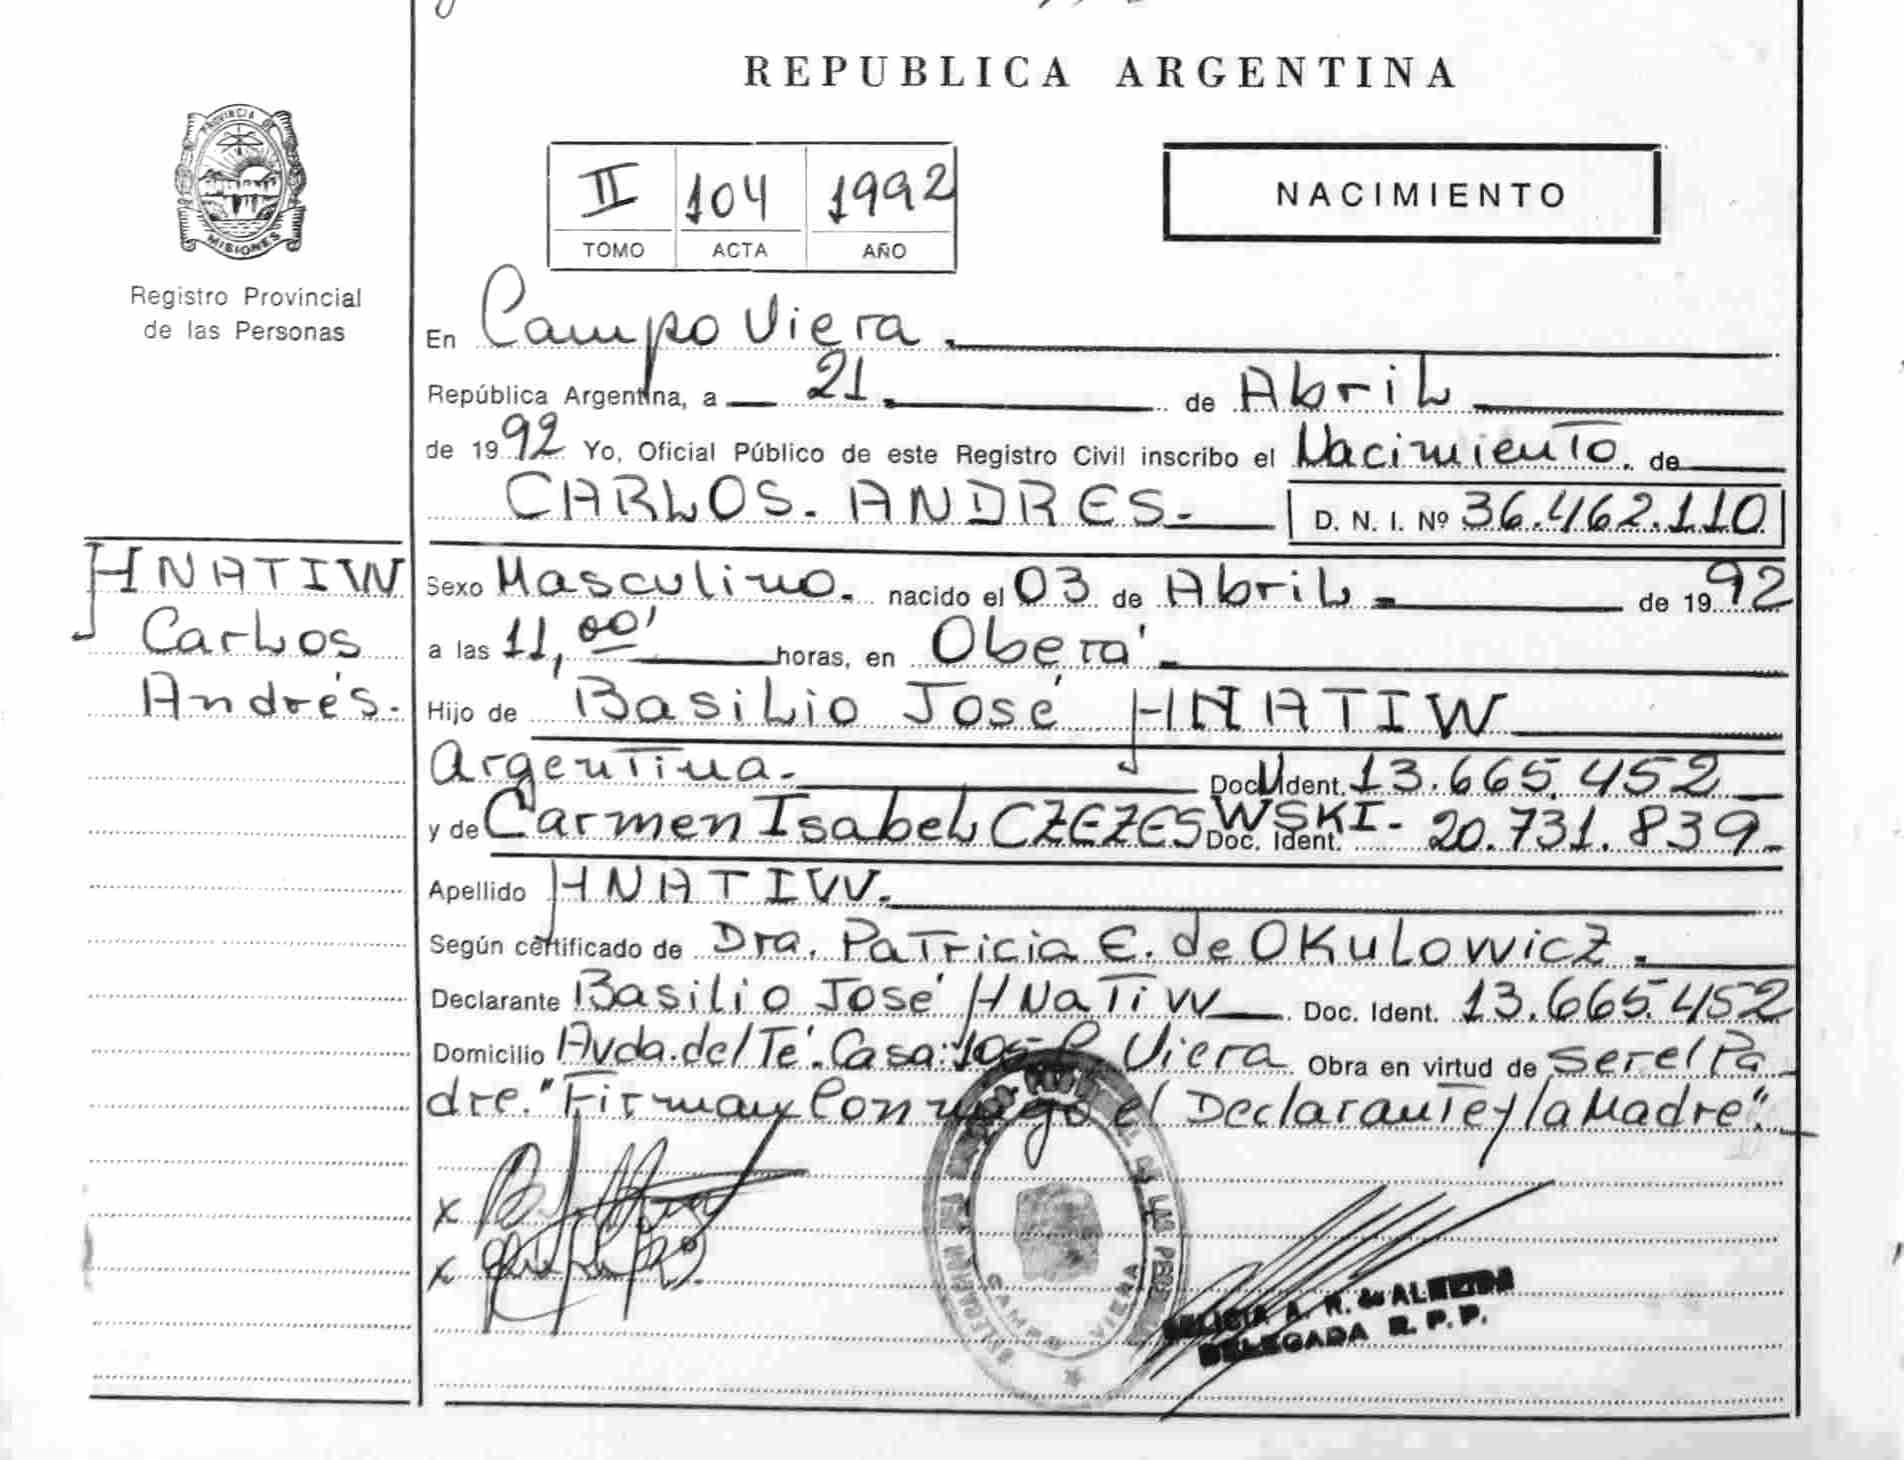 REPUBLICA ARGENTINA
PROVINCIA DE
MISIONES
Registro Provincial
de las Personas
II 104 1992
TOMO ACTA AÑO
NACIMIENTO
En Campo Viera.
República Argentina, a 21 de Abril
de 1992 Yo, Oficial Público de este Registro Civil inscribo el Nacimiento. de
CARLOS. ANDRES.- D. N. I. Nº 36.462.110
HNATIW
Carlos
Andrés.-
Sexo Masculino. nacido el 03 de Abril.- de 1992
a las 11,00' horas, en Oberá.-
Hijo de Basilio José HNATIW
Argentina.- Doc. Ident. 13.665.452
y de Carmen Isabel CZEZESWSKI.- Doc. Ident. 20.731.839.-
Apellido HNATIW.
Según certificado de Dra. Patricia E. de OKULOWICZ.
Declarante Basilio José HNATIW Doc. Ident. 13.665.452
Domicilio Avda. del Té. Casa: 105 C. Viera Obra en virtud de ser el Pa
dre. "Firman Conmigo el Declarante y la Madre".-
x
x
DE LAS
CAMPO VIERA
A. R. de ALMEIDA
DELEGADA R. P. P.